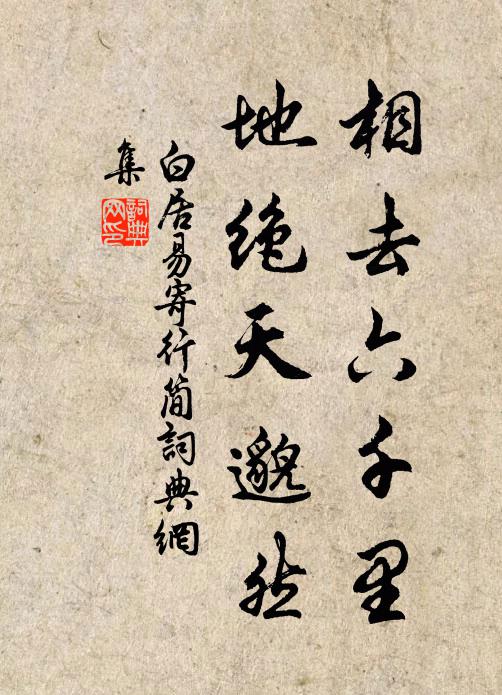 相去六千里
地绝天邈然
白居易寄行简詞典網
集
詞典網印